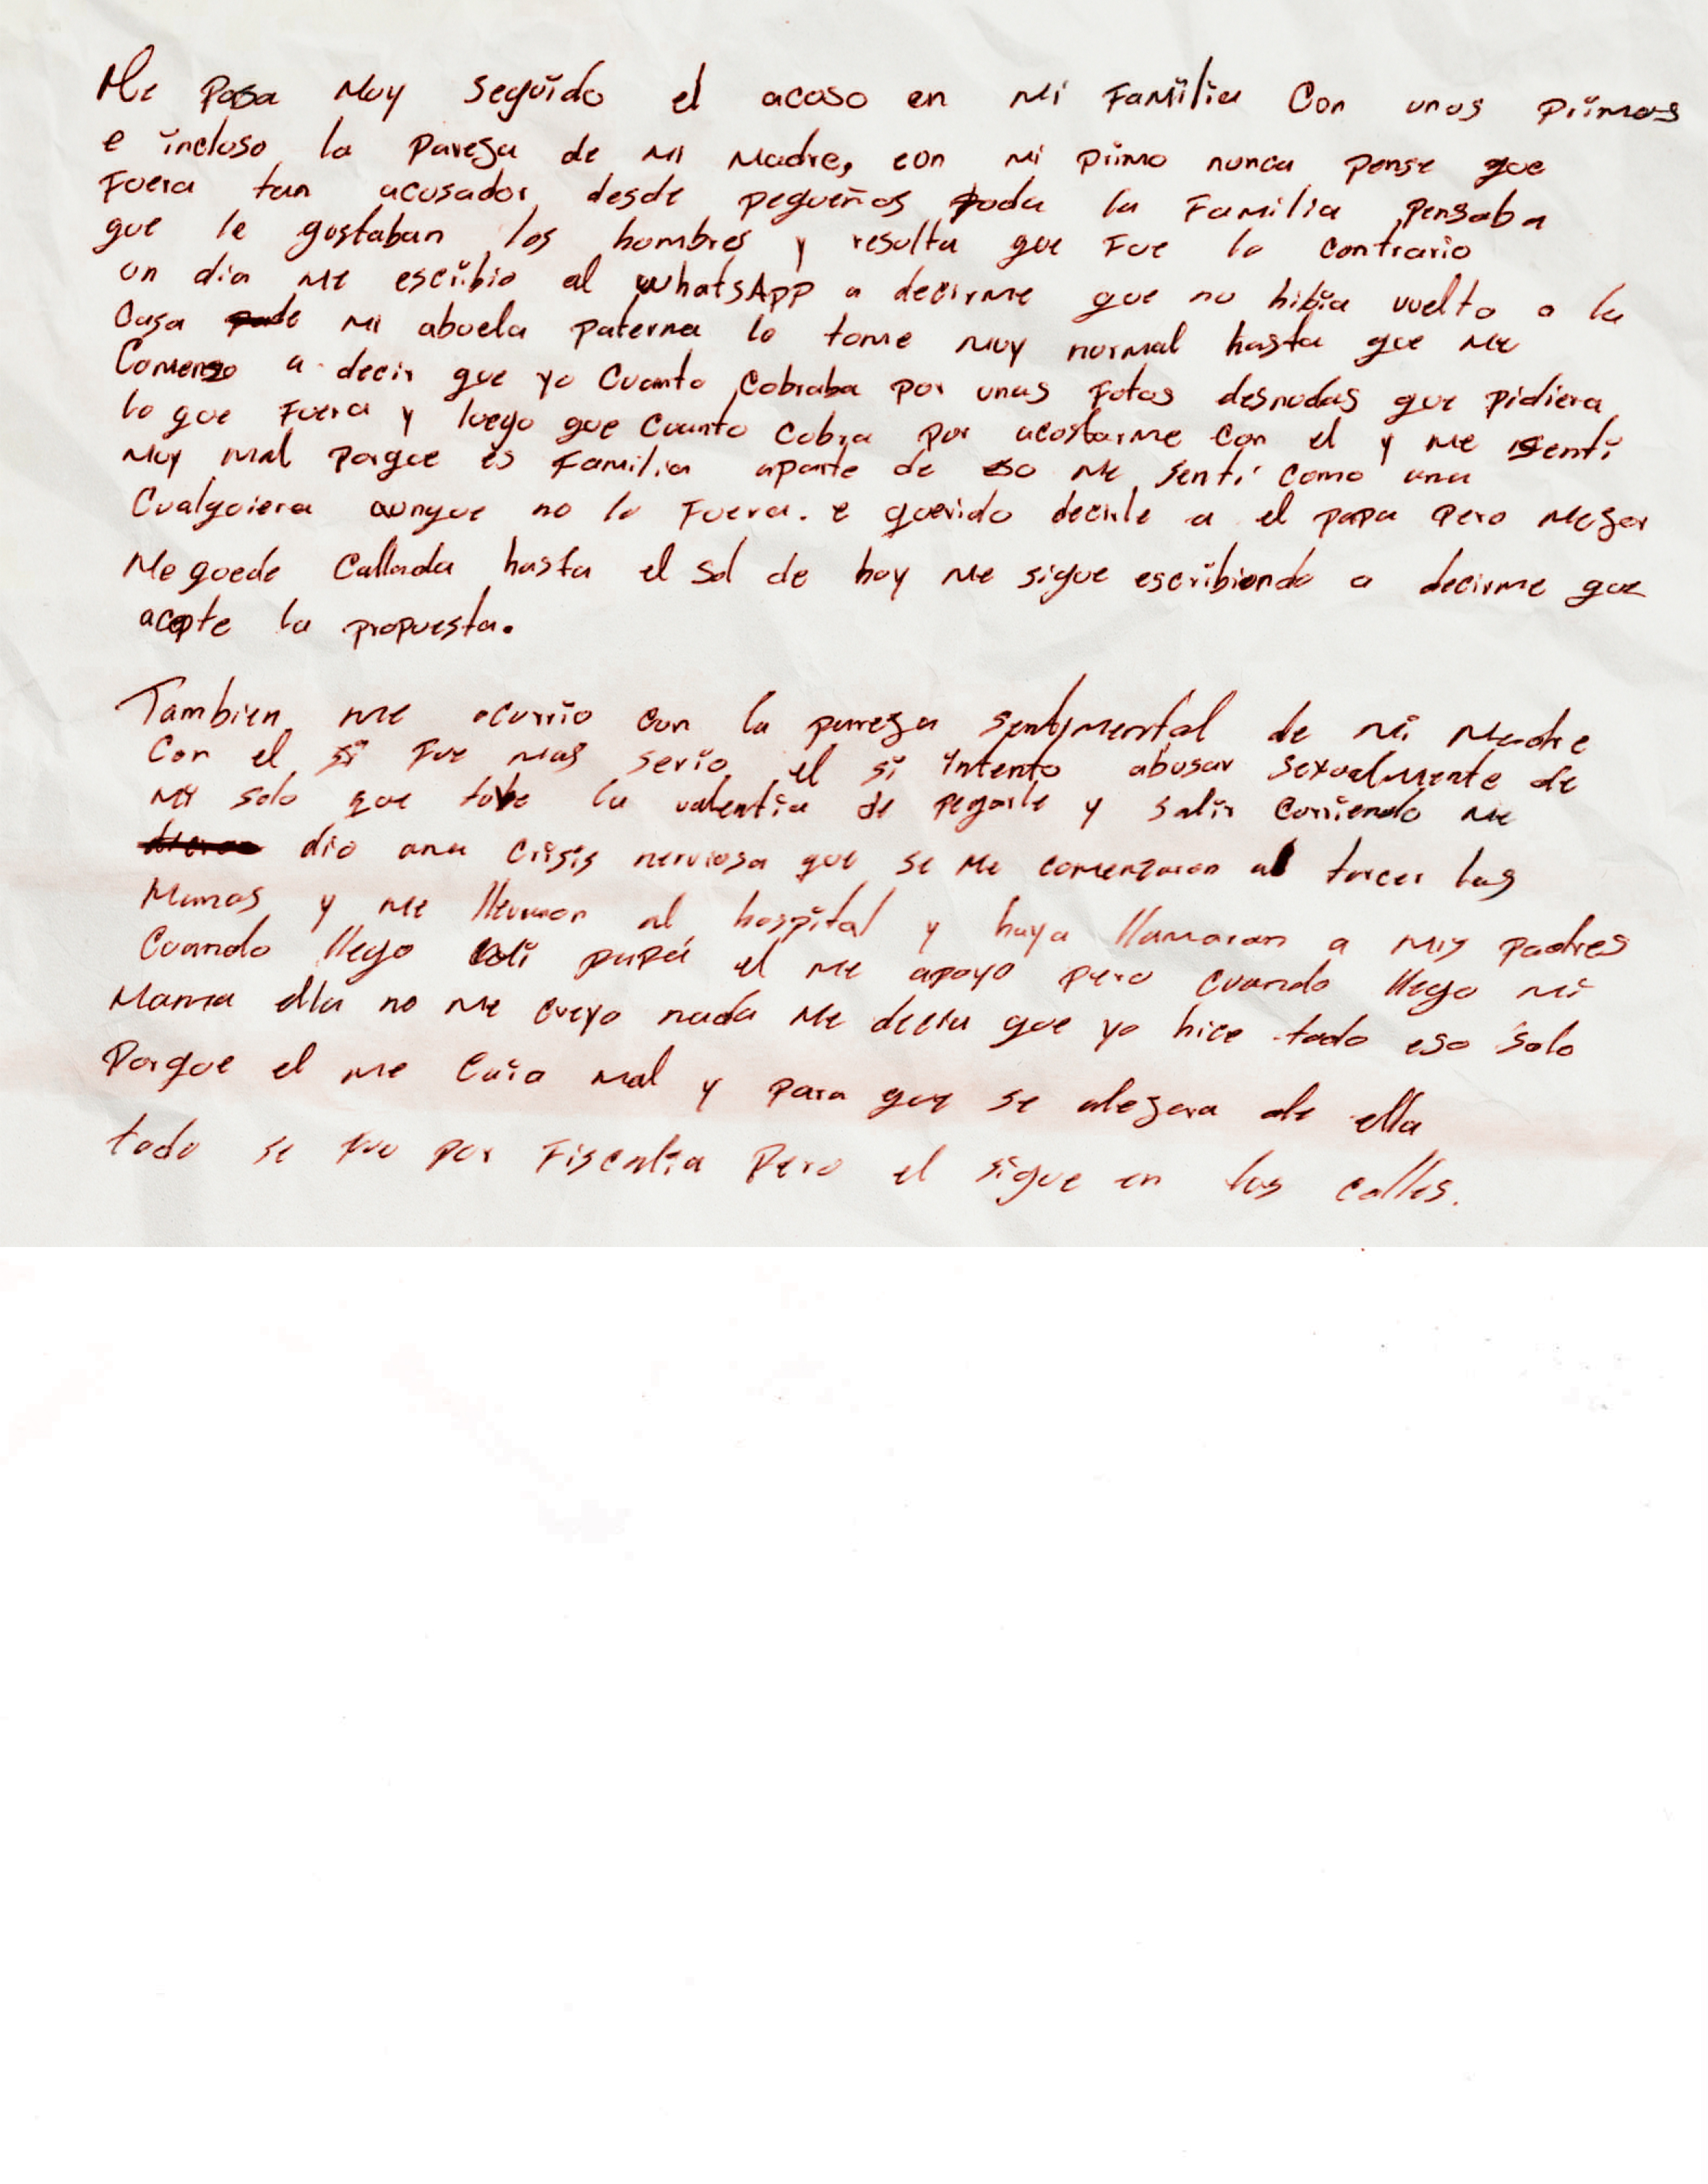 Me pasa muy seguido el acoso en mi familia con unos primos
e incluso la pareja de mi madre, con mi primo nunca pense que
fuera tan acusador desde pequeños toda la familia pensaba
que le gustaban los hombres y resulta que fue lo contrario
un dia me escribio al whatsApp a decirme que no hibia vuelto a la
casa de mi abuela paterna lo tome muy normal hasta que me
comenzo a decir que yo cuanto cobraba por unas fotos desnudas que pidiera
lo que fuera y luego que cuanto cobra por acostarme con el y me senti
muy mal porque es familia aparte de eso me sentí como una
cualquiera aunque no lo fuera. e querido decirle a el papa pero mejor
me quede callada hasta el sol de hoy me sigue escribiendo a decirme que
acepte la propuesta.
Tambien me ocurrio con la pareja sentimental de mi madre
con el si fue mas serio el si intento abusar sexualmente de
mi solo que tube la valentia de pegarle y salir corriendo me
dio una crisis nerviosa que se me comenzaron al torcer las
manos y me llevaron al hospital y haya llamaron a mis padres
cuando llego mi papá el me apoyo pero cuando llego mi
mama ella no me creyo nada me decia que yo hice todo eso solo
porque el me caia mal y para que se alejara de ella
todo se fue por fiscalia pero el sigue en las calles.